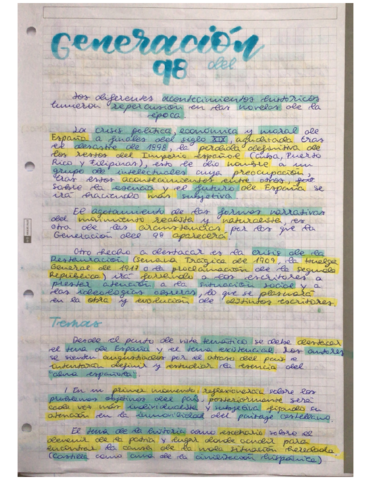 Generación
del
98
Los diferentes acontecimientos históricos
tuvieron repercusión en las novelas de la
época.
La crisis política, económica y moral de
España a finales del siglo XIX agudizada tras
el desastre de 1898, la pérdida definitiva de
los restos del Imperio Español (Cuba, Puerto
Rico y Filipinas), es le dio nombre a un
grupo de intelectuales cuya preocupación
tras estos acontecimientos entre otros, fue
sobre la esencia y el futuro de España se
irá haciendo más subjetiva.
El agotamiento de las formas narrativas
del movimiento realista y naturalista es
otra de las circunstancias por las que la
Generación del 98 aparecerá.
Otro hecho a destacar es la crisis de la
Restauración (Semana Trágica de 1909, la huelga
General de 1917 o la proclamación de la Segunda
República) irá haciendo a los escritores a
prestar atención a la situación social y a
las ideologías obreras, lo que se plasmará
en la obra y evolución de distintos escritores.
Temas
Desde el punto de vista temático se debe destacar
el tema de España y el tema existencial. Los autores
se sienten angustiados por el atraso del país e
intentarán definir y estudiar la esencia del
alma española.
En un primer momento reflexionarán sobre los
problemas objetivos del país, posteriormente será
cada vez más individualista y subjetiva fijando su
atención en la austeridad del paisaje castellano.
El tema de la historia como escenario sobre el
devenir de la patria y lugar donde acudir para
encontrar la causa de la mala situación heredada
(Castilla como cuna de la hispánica)